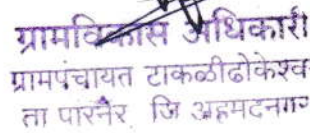 ग्रामविकास अधिकारी
ग्रामपंचायत टाकळीढोकेश्व
ता पारनेर जि अहमदनगर